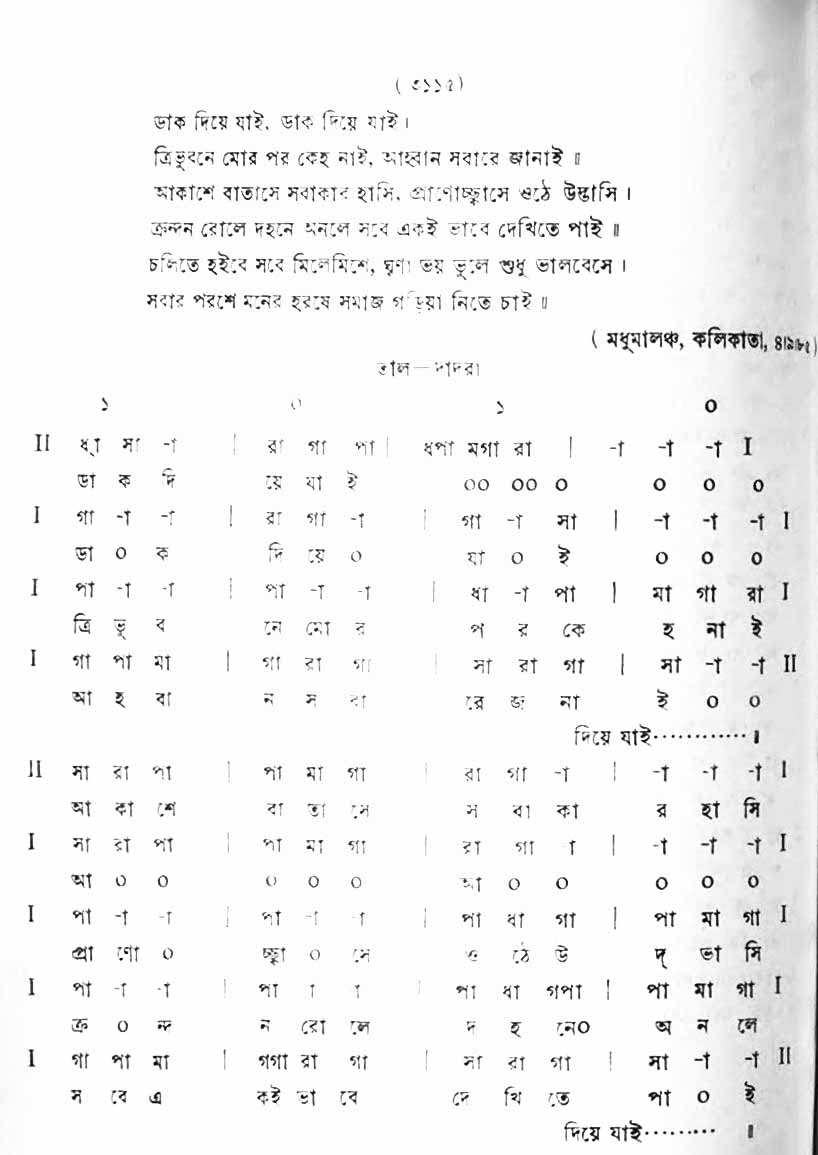 ( ৩১১৫)
ডাক দিয়ে যাই, ডাক দিয়ে যাই।
ত্রিভুবনে মোর পর কেহ নাই, আহ্বান সবারে জানাই ॥
আকাশে বাতাসে সবাকার হাসি, প্রাণোচ্ছ্বাসে ওঠে উদ্ভাসি।
ক্রন্দন রোলে দহনে অনলে সবে একই ভাবে দেখিতে পাই ॥
চলিতে হইবে সবে মিলেমিশে, ঘৃণা ভয় ভুলে শুধু ভালবেসে।
সবার পরশে মনের হরষে সমাজ গড়িয়া নিতে চাই ॥
( মধুমালঞ্চ, কলিকাতা, ৪।৯।৮৫)
তাল—দাদরা
১ ০ ১ ০
II ধ্া সা -া | রা গা পা | ধপা মগা রা | -া -া -া I
ডা ক দি য়ে যা ই ০০ ০০ ০ ০ ০ ০
I গা -া -া | রা গা -া | গা -া সা | -া -া -া I
ডা ০ ক দি য়ে ০ যা ০ ই ০ ০ ০
I পা -া -া | পা -া -া | ধা -া পা | মা গা রা I
ত্রি ভু ব নে মো র প র কে হ না ই
I গা পা মা | গা রা গা | সা রা গা | সা -া -া II
আ হ বা ন স বা রে জ না ই ০ ০
দিয়ে যাই············॥
II সা রা পা | পা মা গা | রা গা -া | -া -া -া I
আ কা শে বা তা সে স বা কা র হা সি
I সা রা পা | পা মা গা | রা গা া | -া -া -া I
আ ০ ০ ০ ০ ০ আ ০ ০ ০ ০ ০
I পা -া -া | পা -া -া | পা ধা গা | পা মা গা I
প্রা ণো ০ চ্ছ্বা ০ সে ও ঠে উ দ্ ভা সি
I পা -া -া | পা া া | পা ধা গপা | পা মা গা I
ক্র ০ ন্দ ন রো লে দ হ নে০ অ ন লে
I গা পা মা | গগা রা গা | সা রা গা | সা -া -া II
স বে এ কই ভা বে দে খি তে পা ০ ই
দিয়ে যাই········· ॥